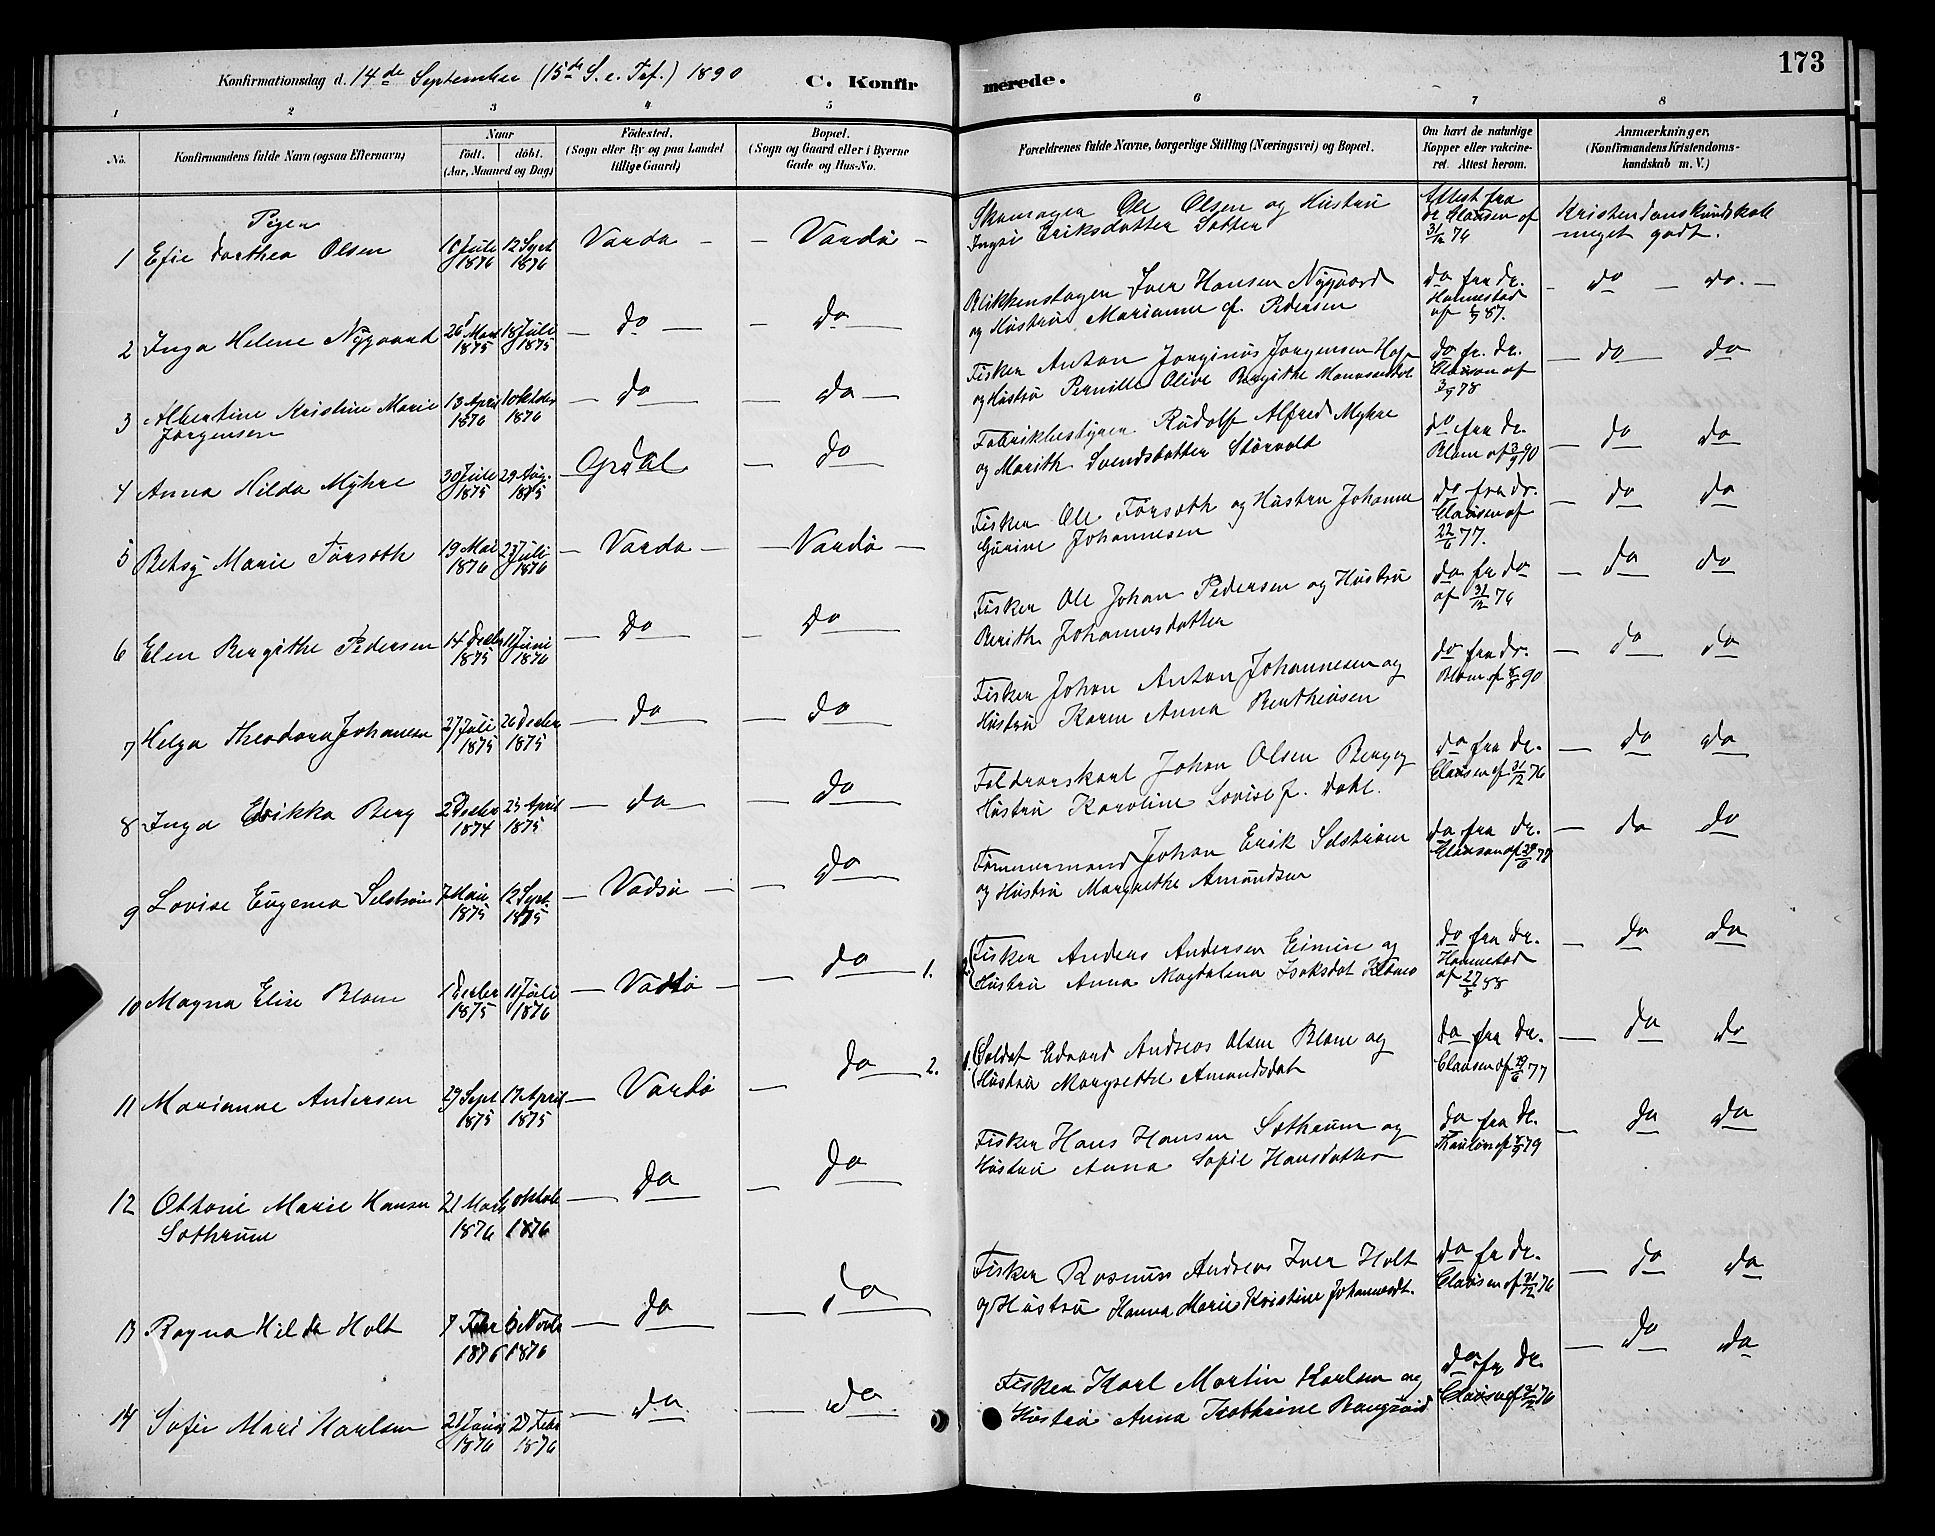 173
Konfirmationsdag d. 14de September (15de S. e. Tref.) 1890
C. Konfirmerede.
1 2 3 4 5 6 7 8
No.
Konfirmandens fulde Navn (ogsaa Efternavn)
Naar
födt. döbt.
(Aar, Maaned og Dag)
Födested.
(Sogn eller By og paa Landet
tillige Gaard)
Bopæl.
(Sogn og Gaard eller i Byerne
Gade og Hus-No.
Forældrenes fulde Navne, borgerlige Stilling (Næringsvei) og Bopæl.
Om havt de naturlige
Kopper eller vakcine-
ret. Attest herom.
Anmærkninger,
(Konfirmandens Kristendoms-
kundskab m. V.)
Piger
1 Efie Dorthea Olsen
Juli 1876
12 Sept 1876
Vardø – – Vardø –
Skomager Ole Olsen og Hustru
Eriksdatter
Attest fra
dr. Clausen af
31/12 76
Kristendomskundskab
meget godt.
2 Inga Helene Nygaard
26 Mars 1875
18 Juli 1875
– do – – do –
Blikkenslager Iver Hansen Nygaard
og Hustru Marianne f. Pedersen
do fra dr.
Hannestad
– do – do. –
3 Albertine Kristine Marie
Jørgensen
13 April 1876
– do – – do –
Fisker Anton Jørginus Jørgensen
og Hustru Pernille Olive Bergithe
do fr. dr.
Clausen af
– do – do
4 Anna Hilda Myhre
30 Juli 1875
29 Aug. 1875
– do
Fabrikbestyrer Rudolf Alfred Myhre
og Marith Svendsdatter Storvold
do fra dr.
Blom af 3/9 90
– do – do
5 Betsy Marie Torsoth
19 Mai 1876
23 Juli 1876
– Vardø – – Vardø –
Fisker Ole Torsoth og Hustru Johanne
Gurine Johannesen
do fra dr.
Clausen af
22/6 77.
– do do
6 Elen Bergithe Pedersen
14 Decbr 1875
Juni 1876
– do – – do –
Fisker Ole Johan Pedersen og Hustru
Berith Johannesdatter
do fr do
af 31/12 76
– do do
7 Helga Theodora Johansen
27 Juli 1875
26 Decbr 1875
– do – – do –
Fisker Johan Anton Johannesen og
Hustru Karen Anna
do fra dr.
Blom af 90
– do – do
8 Inga Erikka Berg
Decbr 1874
25 April 1875
– do – – do –
Johan Olsen Berg og
Hustru Karoline Lovise f. Dahl.
do fra dr.
Clausen af 31/12 76
– do do
9 Lovise Eugenea Selstrøm
7 Mai 1875
12 Sept. 1875
– Vadsø – – do –
Tømmermand Johan Erik Selstrøm
og Hustru Margrethe Amundsen
do fra dr.
Clausen af
– do do
10 Magna Elise Blom
1 Decbr 1875
Juli 1876
– Vadsø – – do – 1.
2. Fisker Anders Andersen og
Hustru Anna Magdalena Isaksdat
do fra dr.
Hannestad
af 27/8 88
– do do
11 Marianne Andersen
29 Sept 1875
17 April 1875
– Vardø – do – 2.
1. Soldat Edvard Andreas Olsen Blom og
Hustru Margrethe Amundsdat
do fra dr.
Clausen af 77
– do do
12 Ottone Marie Hansen
Sothrum
21 Mars 1876
oktob 1876
– do – – do –
Fisker Hans Hansen Sothrum og
Hustru Anna Sofie Hansdatter
do fra dr.
79
– do do
13 Ragna Hilda Holt
7 Febr 1876
Novbr 1876
– do – – do –
Fisker Rasmus Andreas Iver Holt
og Hustru Hanna Marie Kristine Johannesdt.
do fr dr.
Clausen af 31/12 76
– do do
14 Sofie Marie Karlsen
21 Januar 1876
27 Febr 1876
– do – – do –
Fisker Karl Martin Karlsen og
Hustru Anna Kathrine
do fr dr.
Clausen af 31/12 76
– do do